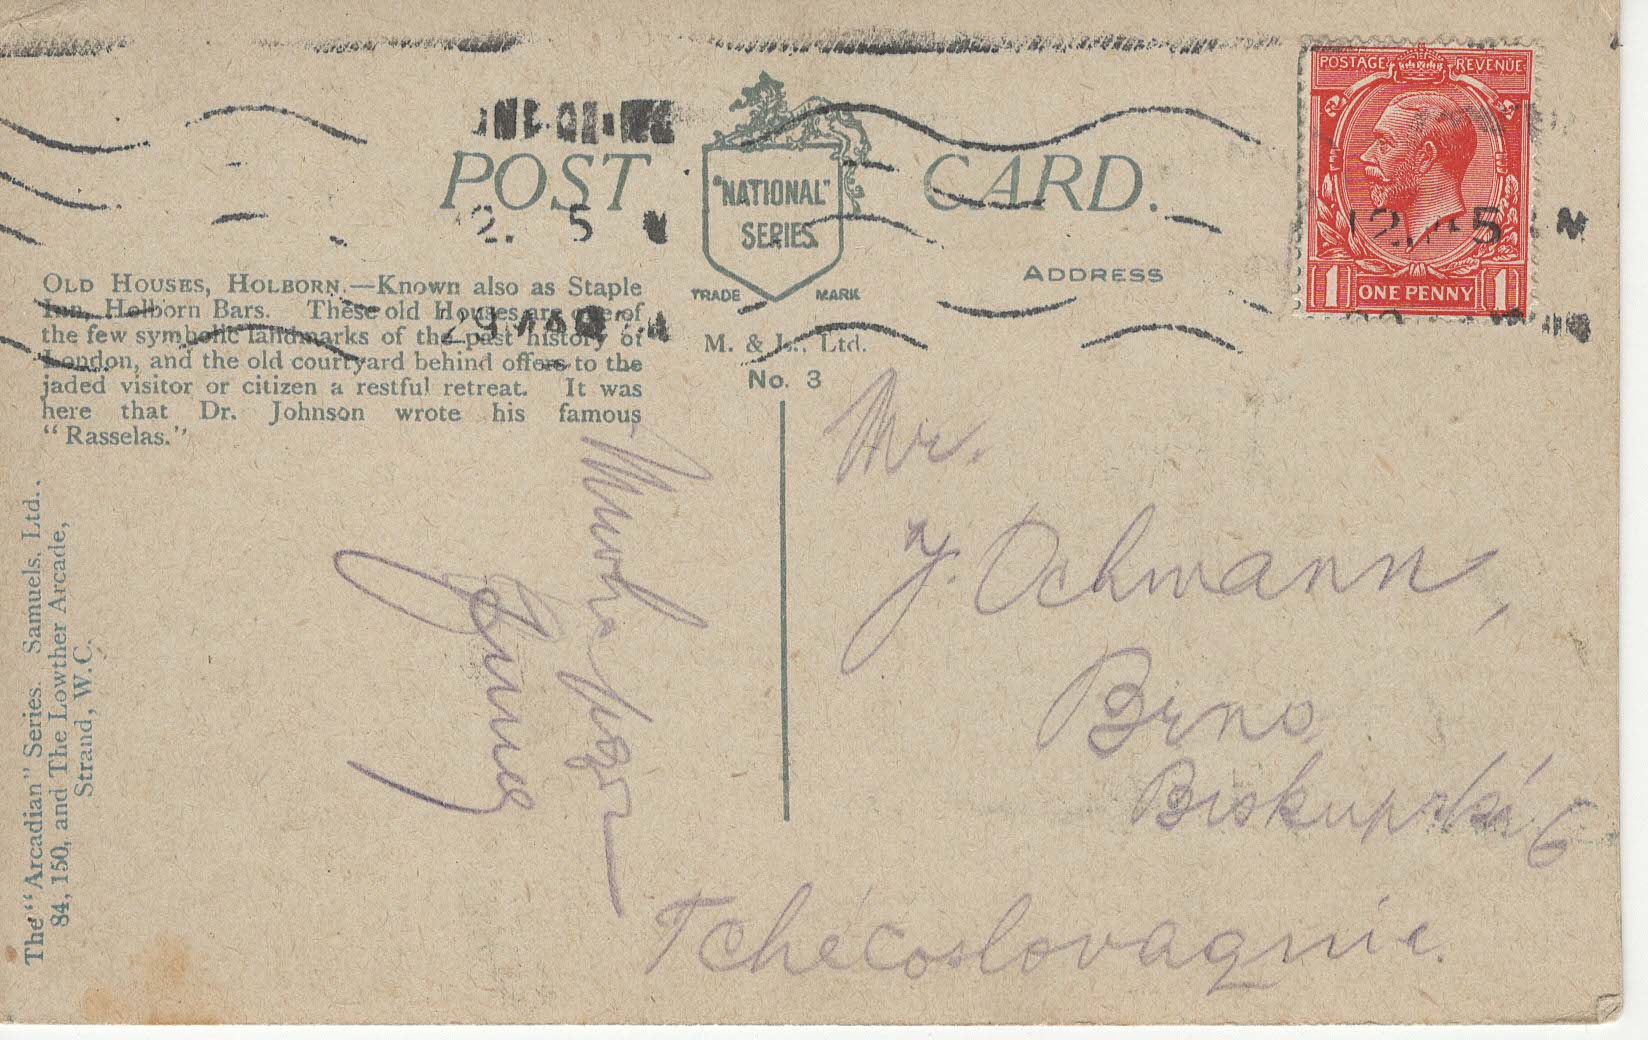 POSTAGE REVENUE
1 ONE PENNY 1
POST CARD.
"NATIONAL"
SERIES
TRADE MARK
M. & L., Ltd.
No. 3
ADDRESS
OLD HOUSES, HOLBORN.—Known also as Staple
Inn, Holborn Bars. These old Houses are one of
the few symbolic landmarks of the past history of
London, and the old courtyard behind offers to the
jaded visitor or citizen a restful retreat. It was
here that Dr. Johnson wrote his famous
"Rasselas."
The "Arcadian" Series. Samuels, Ltd.,
84, 150, and The Lowther Arcade,
Strand, W.C.
Mr.
J. Ochmann,
Brno
Biskupská 6
Tchécoslovaquie.